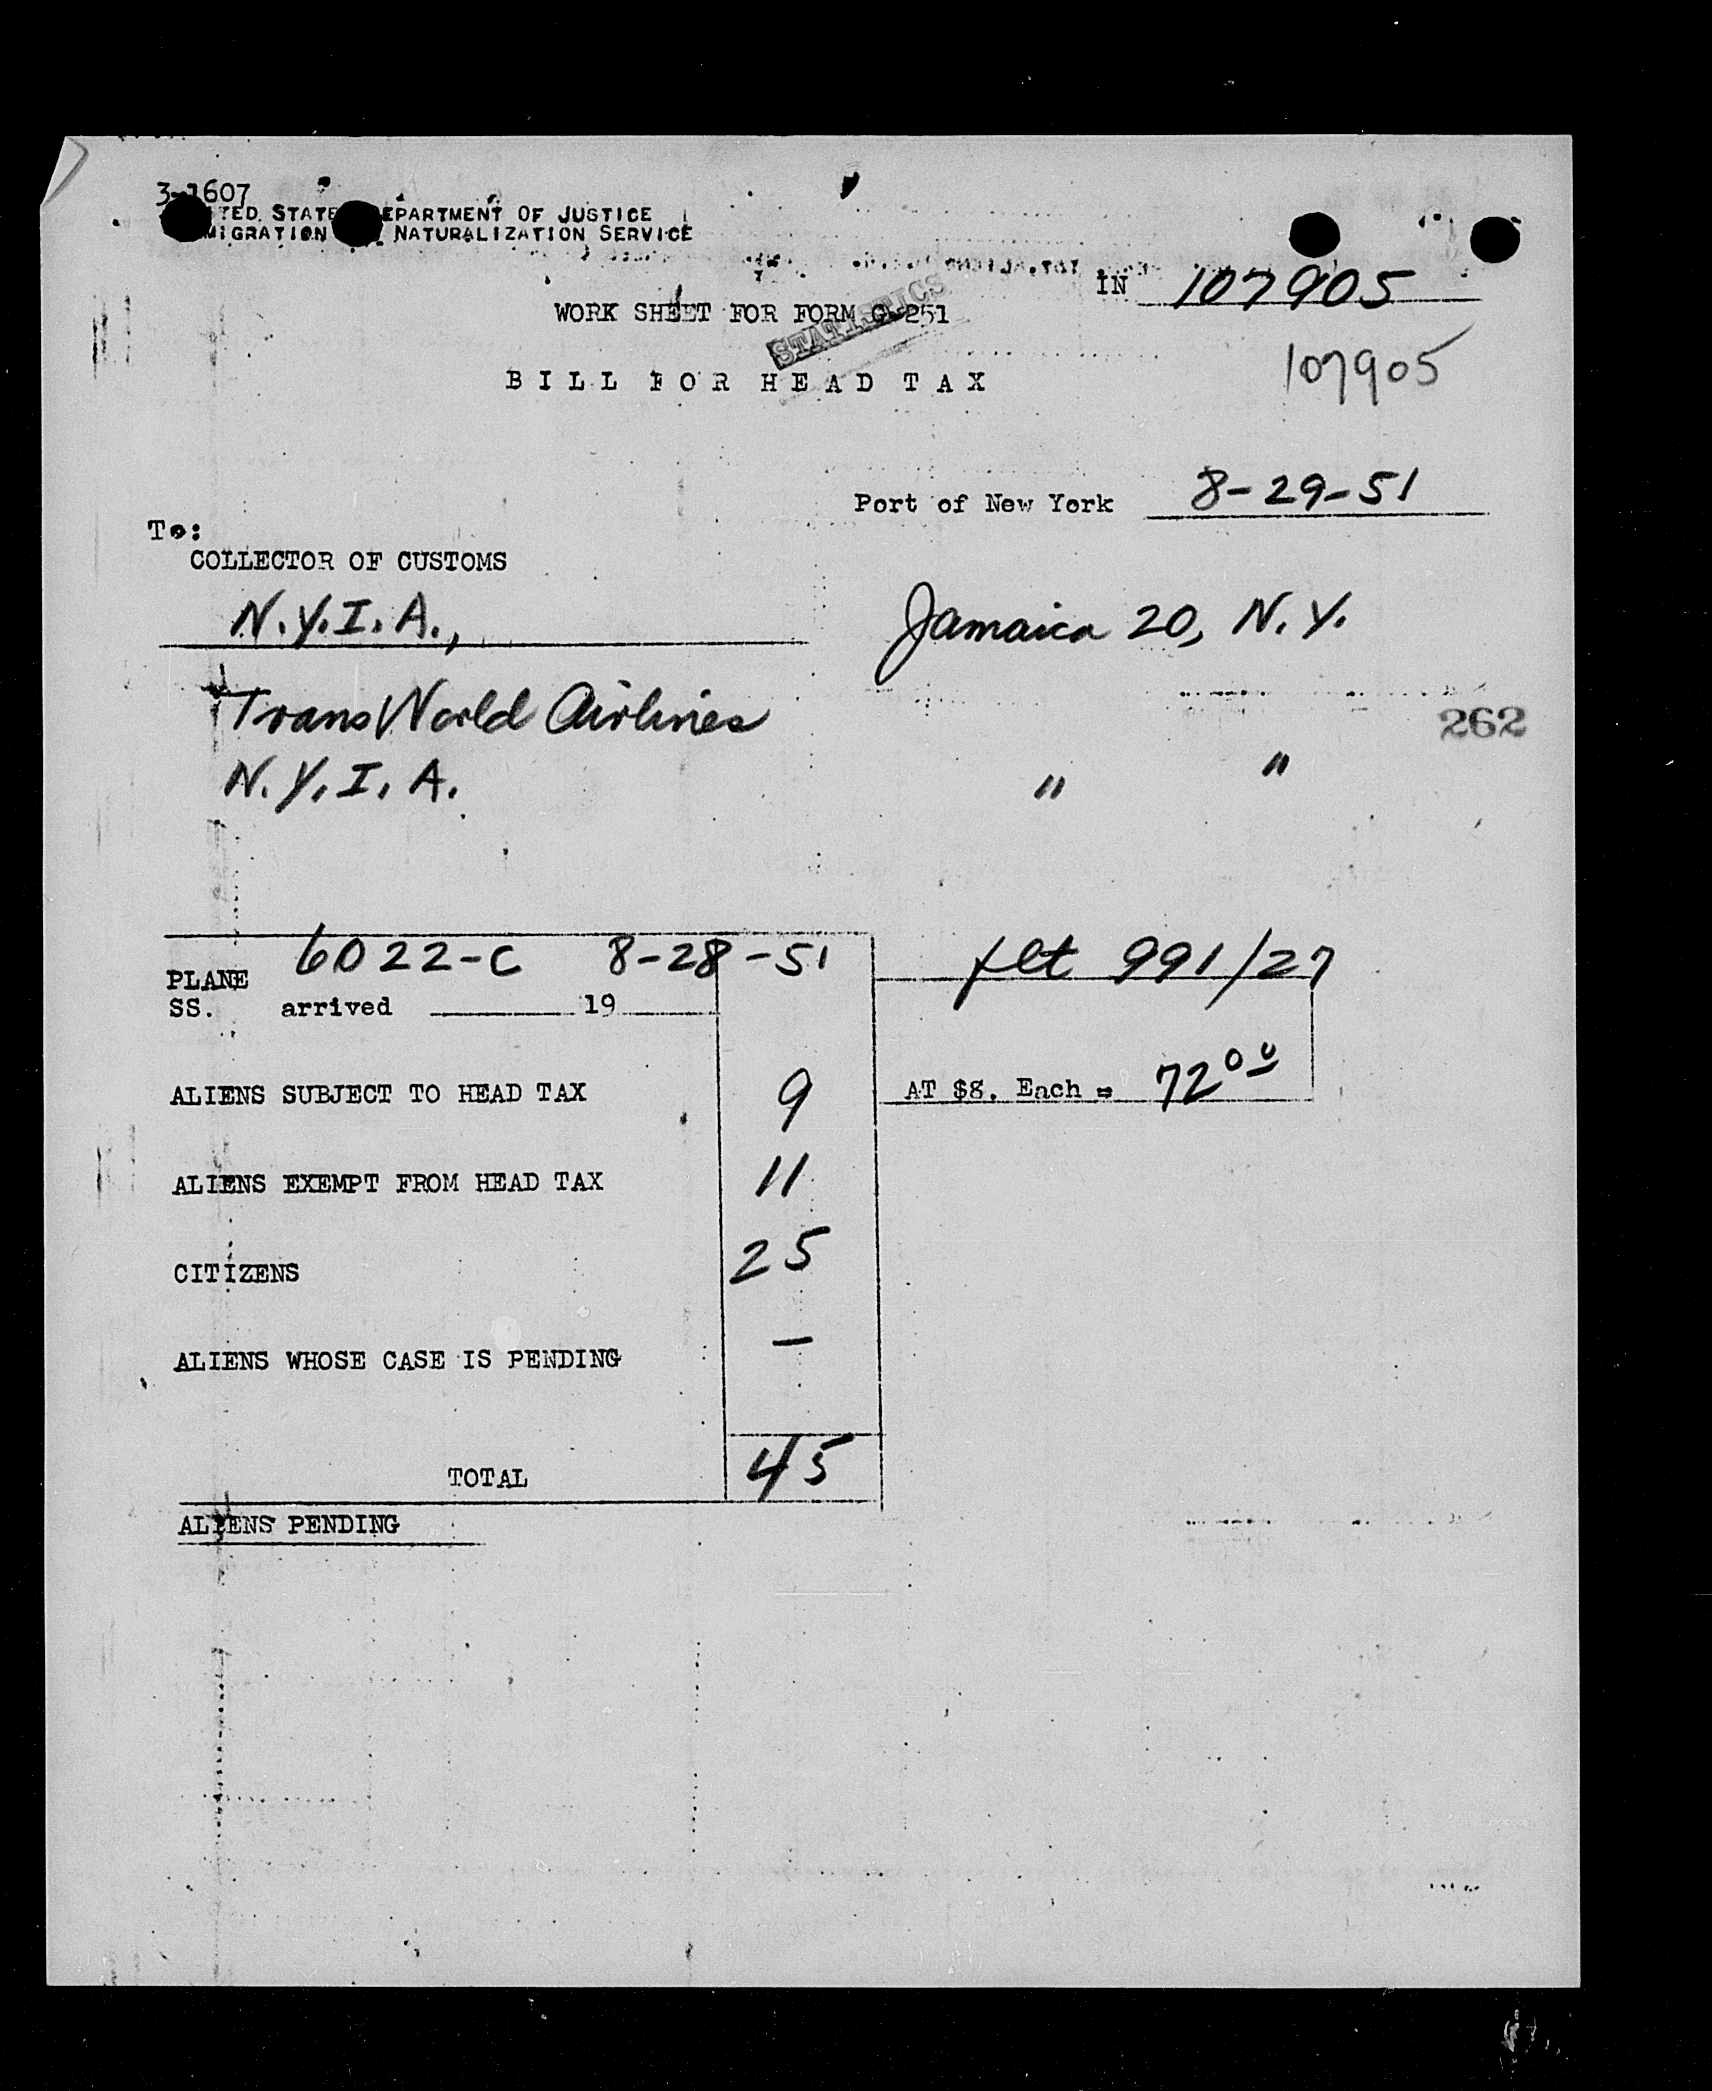 3-1607
UNITED STATES DEPARTMENT OF JUSTICE
IMMIGRATION NATURALIZATION SERVICE
IN 107905
WORK SHEET FOR FORM G-251
STATISTICS
BILL FOR HEAD TAX
107905
Port of New York 8-29-51
To:
COLLECTOR OF CUSTOMS
N.Y.I.A., Jamaica 20, N.Y.
Trans World Airlines
262
N.Y.I.A. " "
PLANE 6022-C 8-28-51 flt 991/27
SS. arrived 19
ALIENS SUBJECT TO HEAD TAX 9 AT $8. Each = 72.00
ALIENS EXEMPT FROM HEAD TAX 11
CITIZENS 25
ALIENS WHOSE CASE IS PENDING —
TOTAL 45
ALIENS PENDING